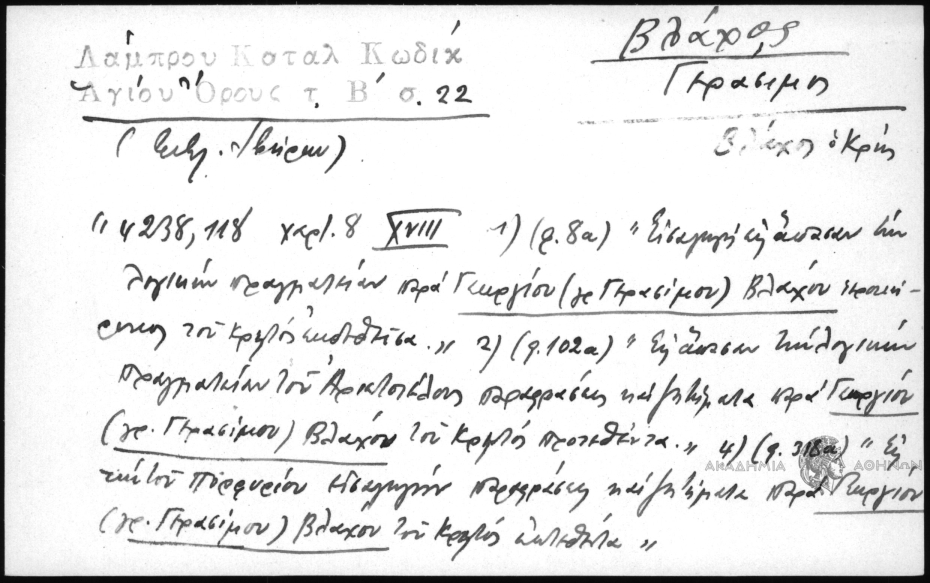 Λάμπρου Καταλ Κωδίκ
Ἁγίου Ὄρους τ. Β΄ σ. 22
(Βιβλ. Ἰβήρων)
Βλάχος
Γεράσιμος
Βλάχος ὁ Κρής
"4238,118 χαρτ. 8 XVIII 1) (φ. 8α) "Εἰσαγωγὴ εἰς ἅπασαν τὴν
λογικὴν πραγματείαν παρὰ Γεωργίου (γρ. Γερασίμου) Βλάχου ἱεροκή-
ρυκος τοῦ Κρητὸς ἐκτεθεῖσα." 2) (φ. 102α) "Εἰς ἅπασαν τὴν λογικὴν
πραγματείαν τοῦ Ἀριστοτέλους παραφράσεις καὶ ζητήματα παρὰ Γεωργίου
(γρ. Γερασίμου) Βλάχου τοῦ Κρητὸς προτεθέντα." 4) (φ. 318α) "Εἰς
τὴν τοῦ Πορφυρίου εἰσαγωγὴν παραφράσεις καὶ ζητήματα παρὰ Γεωργίου
(γρ. Γερασίμου) Βλάχου τοῦ Κρητὸς ἐκτεθέντα"
ΑΚΑΔΗΜΙΑ ΑΘΗΝΩΝ